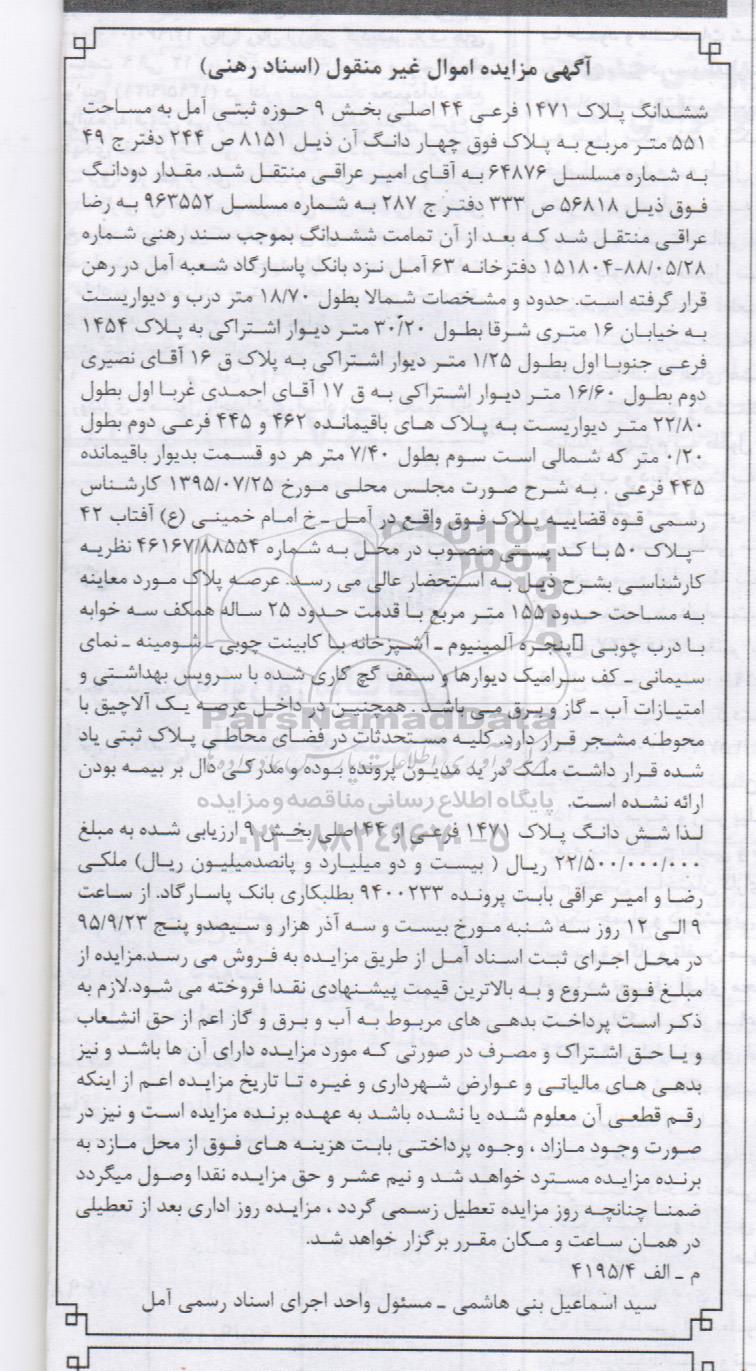 آگهی مزایده اموال غیر منقول (اسناد رهنی)
ششدانگ پلاک ۱۴۷۱ فرعی ۴۴ اصلی بخش ۹ حوزه ثبتی آمل به مساحت
۵۵۱ متر مربع به پلاک فوق چهار دانگ آن ذیل ۸۱۵۱ ص ۲۴۴ دفتر ج ۴۹
به شماره مسلسل ۶۴۸۷۶ به آقای امیر عراقی منتقل شد. مقدار دودانگ
فوق ذیل ۵۶۸۱۸ ص ۳۳۳ دفتر ج ۲۸۷ به شماره مسلسل ۹۶۳۵۵۲ به رضا
عراقی منتقل شد که بعد از آن تمامت ششدانگ بموجب سند رهنی شماره
۱۵۱۸۰۴-۸۸/۰۵/۲۸ دفترخانه ۶۳ آمل نزد بانک پاسارگاد شعبه آمل در رهن
قرار گرفته است. حدود و مشخصات شمالا بطول ۱۸/۷۰ متر درب و دیواریست
به خیابان ۱۶ متری شرقا بطول ۳۰/۲۰ متر دیوار اشتراکی به پلاک ۱۴۵۴
فرعی جنوبا اول بطول ۱/۲۵ متر دیوار اشتراکی به پلاک ق ۱۶ آقای نصیری
دوم بطول ۱۶/۶۰ متر دیوار اشتراکی به ق ۱۷ آقای احمدی غربا اول بطول
۲۲/۸۰ متر دیواریست به پلاک های باقیمانده ۴۶۲ و ۴۴۵ فرعی دوم بطول
۰/۲۰ متر که شمالی است سوم بطول ۷/۴۰ متر هر دو قسمت بدیوار باقیمانده
۴۴۵ فرعی . به شرح صورت مجلس محلی مورخ ۱۳۹۵/۰۷/۲۵ کارشناس
رسمی قوه قضاییه پلاک فوق واقع در آمل ـ خ امام خمینی (ع) آفتاب ۴۲
–پلاک ۵۰ با کد پستی منصوب در محل به شماره ۴۶۱۶۷/۸۸۵۵۴ نظریه
کارشناسی بشرح ذیل به استحضار عالی می رسد. عرصه پلاک مورد معاینه
به مساحت حدود ۱۵۵ متر مربع با قدمت حدود ۲۵ ساله همکف سه خوابه
با درب چوبی پنجره آلمینیوم ـ آشپزخانه با کابینت چوبی ـ شومینه ـ نمای
سیمانی ـ کف سرامیک دیوارها و سقف گچ کاری شده با سرویس بهداشتی و
امتیازات آب ـ گاز و برق می باشد . همچنین در داخل عرصه یک آلاچیق با
محوطه مشجر قرار دارد. کلیه مستحدثات در فضای محاطی پلاک ثبتی یاد
شده قرار داشت ملک در ید مدیون پرونده بوده و مدرکی دال بر بیمه بودن
ارائه نشده است.
لذا شش دانگ پلاک ۱۴۷۱ فرعی از ۴۴ اصلی بخش ۹ ارزیابی شده به مبلغ
۲۲/۵۰۰/۰۰۰/۰۰۰ ریال ( بیست و دو میلیارد و پانصدمیلیون ریال) ملکی
رضا و امیر عراقی بابت پرونده ۹۴۰۰۲۳۳ بطلبکاری بانک پاسارگاد. از ساعت
۹ الی ۱۲ روز سه شنبه مورخ بیست و سه آذر هزار و سیصدو پنج ۹۵/۹/۲۳
در محل اجرای ثبت اسناد آمل از طریق مزایده به فروش می رسد.مزایده از
مبلغ فوق شروع و به بالاترین قیمت پیشنهادی نقدا فروخته می شود.لازم به
ذکر است پرداخت بدهی های مربوط به آب و برق و گاز اعم از حق انشعاب
و یا حق اشتراک و مصرف در صورتی که مورد مزایده دارای آن ها باشد و نیز
بدهی های مالیاتی و عوارض شهرداری و غیره تا تاریخ مزایده اعم از اینکه
رقم قطعی آن معلوم شده یا نشده باشد به عهده برنده مزایده است و نیز در
صورت وجود مازاد ، وجوه پرداختی بابت هزینه های فوق از محل مازد به
برنده مزایده مسترد خواهد شد و نیم عشر و حق مزایده نقدا وصول میگردد
ضمنا چنانچه روز مزایده تعطیل زسمی گردد ، مزایده روز اداری بعد از تعطیلی
در همان ساعت و مکان مقرر برگزار خواهد شد.
م ـ الف ۴۱۹۵/۴
سید اسماعیل بنی هاشمی ـ مسئول واحد اجرای اسناد رسمی آمل
ParsNamadData
پایگاه اطلاع رسانی مناقصه و مزایده
۰۲۱-۸۸۳۴۹۶۷۰-۵